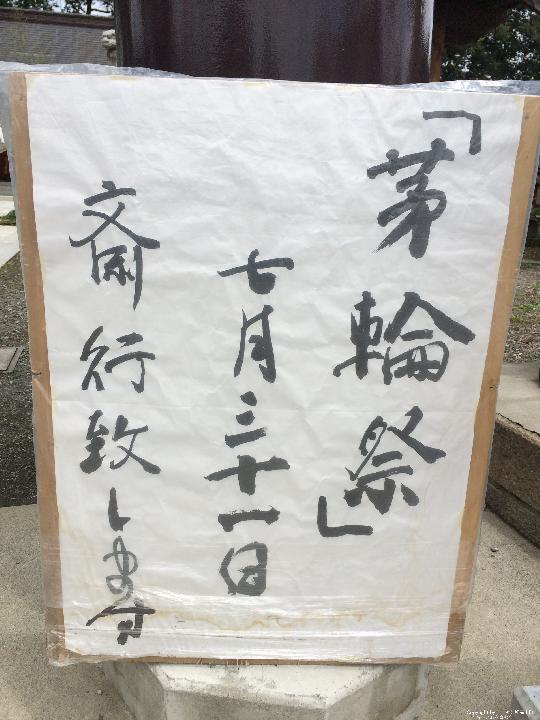 「茅輪祭」
七月三十一日
斎行致します